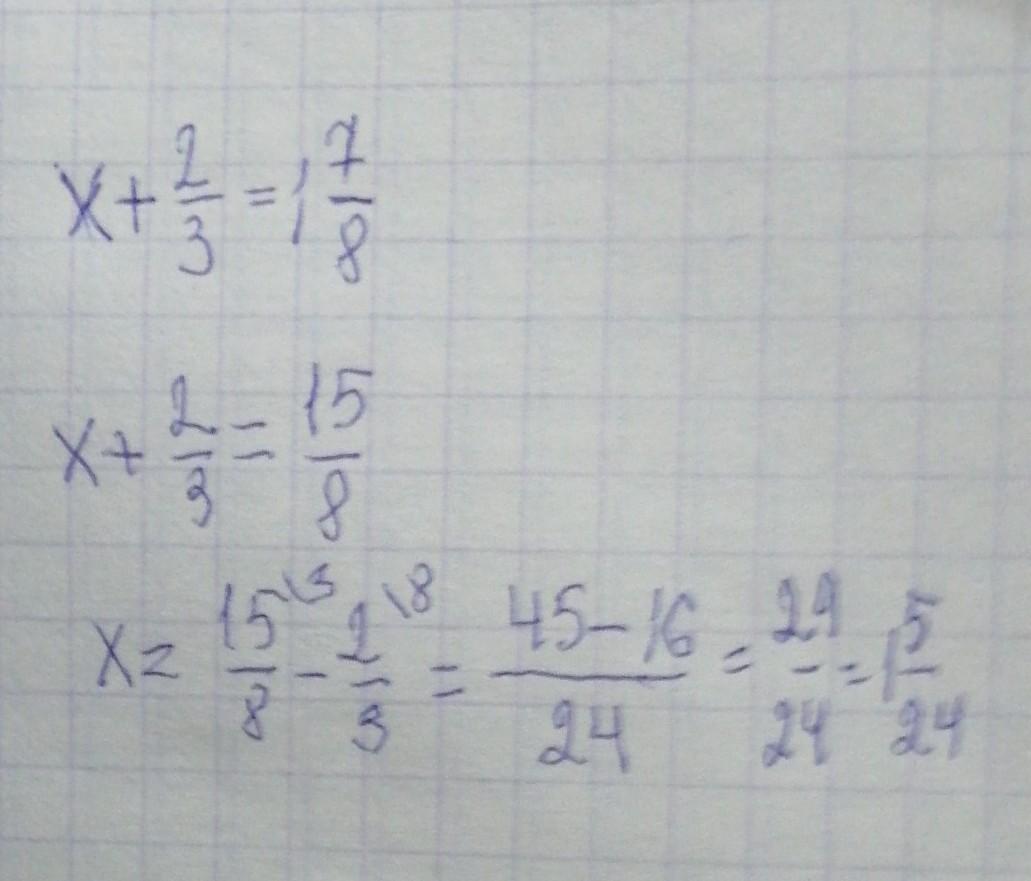 x + 2/3 = 1 7/8
x + 2/3 = 15/8
x = 15\3/8 - 2\8/3 = 45-16/24 = 29/24 = 1 5/24